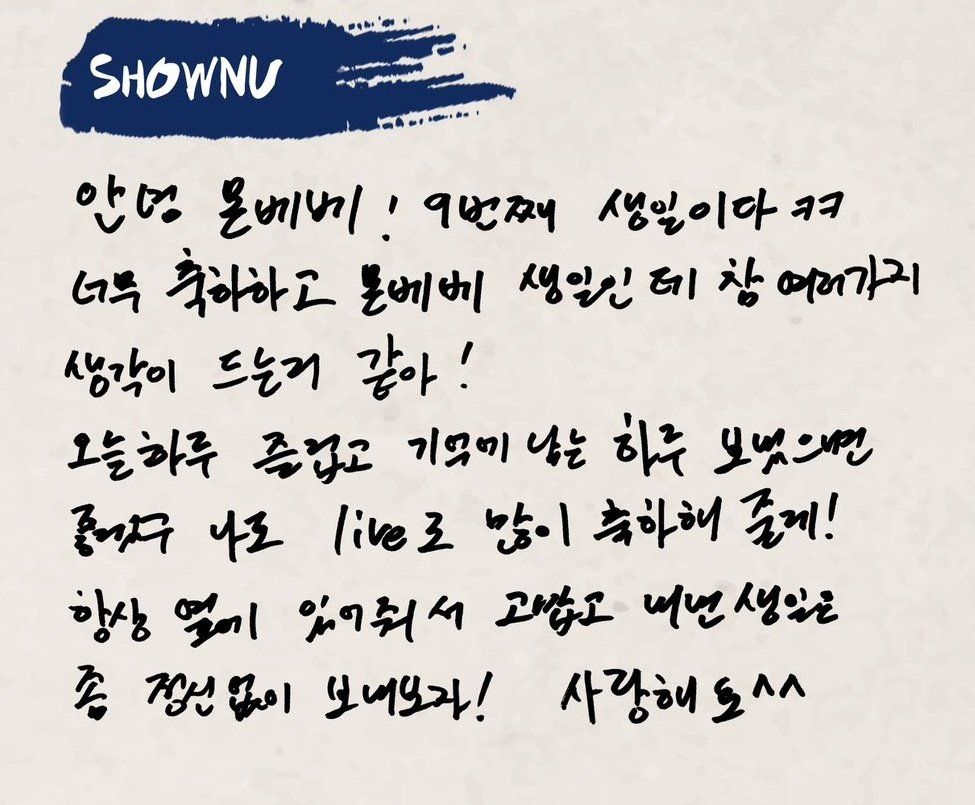 SHOWNU
안녕 몬베베! 9번째 생일이다 ㅋㅋ
너무 축하하고 몬베베 생일인데 참 여러가지
생각이 드는거 같아!
오늘하루 즐겁고 기억에 남는 하루 보냈으면
좋겠구 나도 live로 많이 축하해 줄게!
항상 옆에 있어줘서 고맙고 내년 생일은
좀 정신없이 보내보자! 사랑해요^^